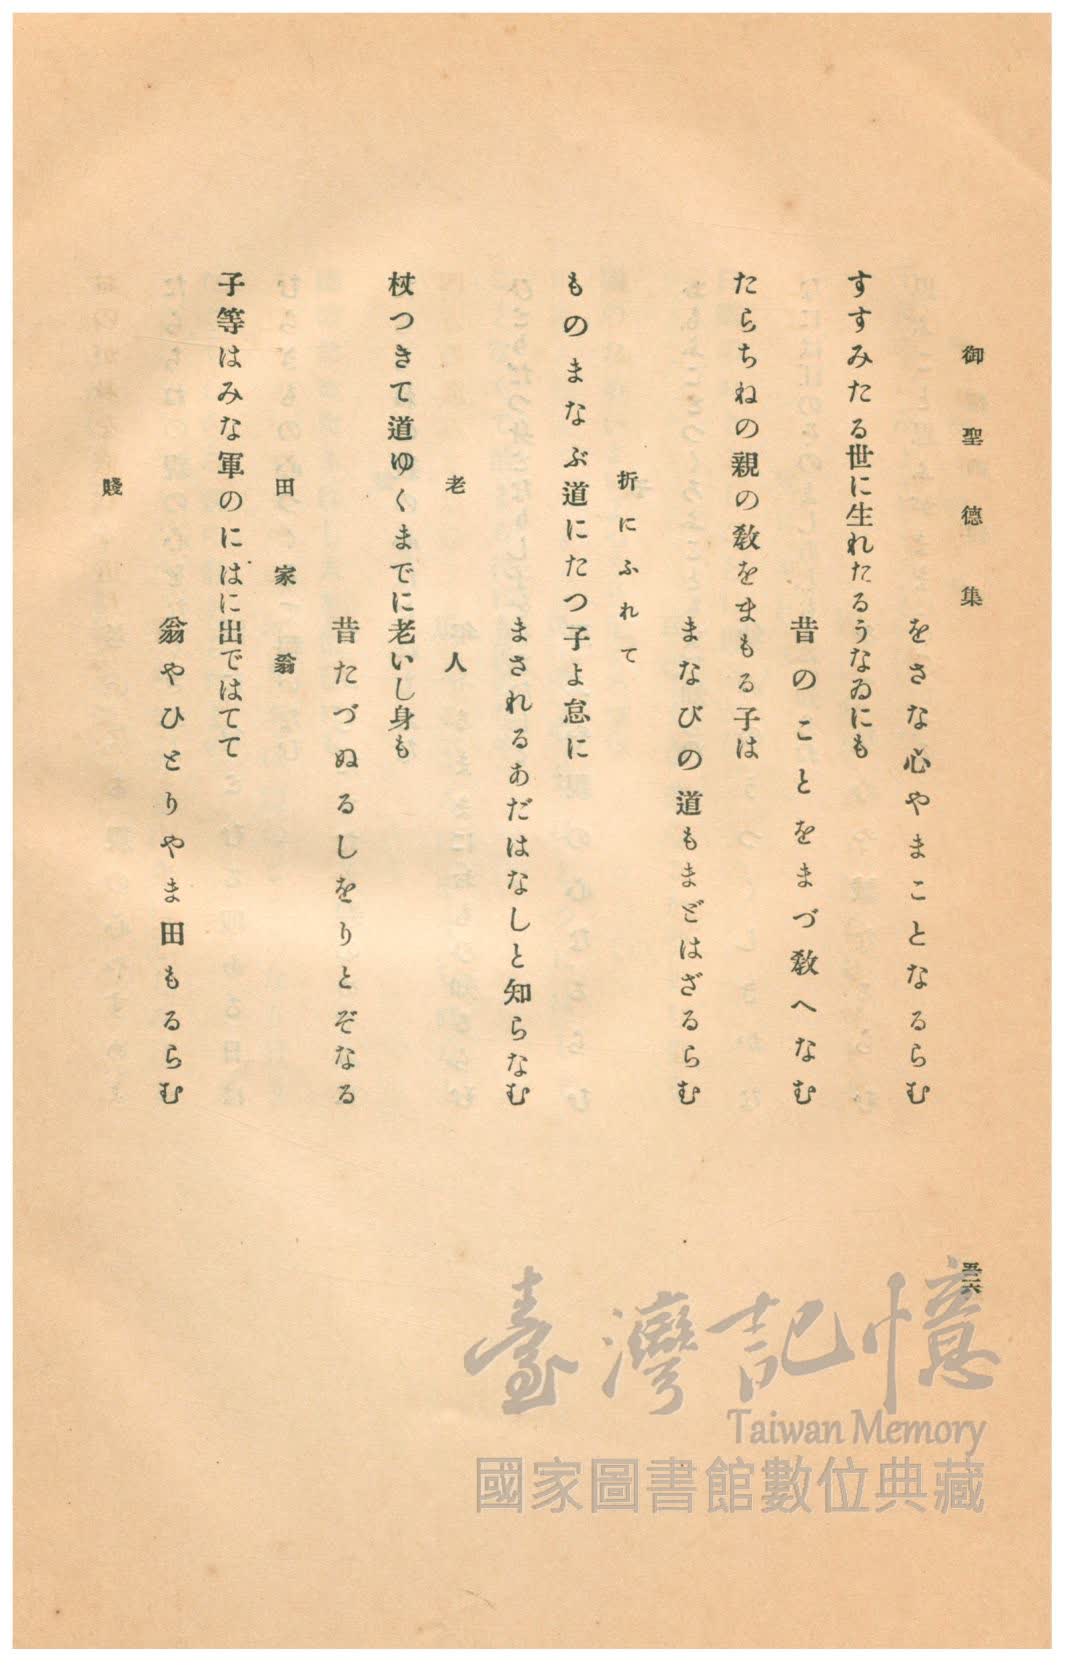 御聖德集
をさな心やまことなるらむ
すすみたる世に生れたるうなゐにも
昔のことをまづ敎へなむ
たらちねの親の敎をまもる子は
まなびの道もまどはざるらむ
折にふれて
ものまなぶ道にたつ子よ怠に
まされるあだはなしと知らなむ
老人
杖つきて道ゆくまでに老いし身も
昔たづぬるしをりとぞなる
田家翁
子等はみな軍のにはに出ではてて
翁やひとりやま田もるらむ
賤
五六
臺灣記憶
Taiwan Memory
國家圖書館數位典藏